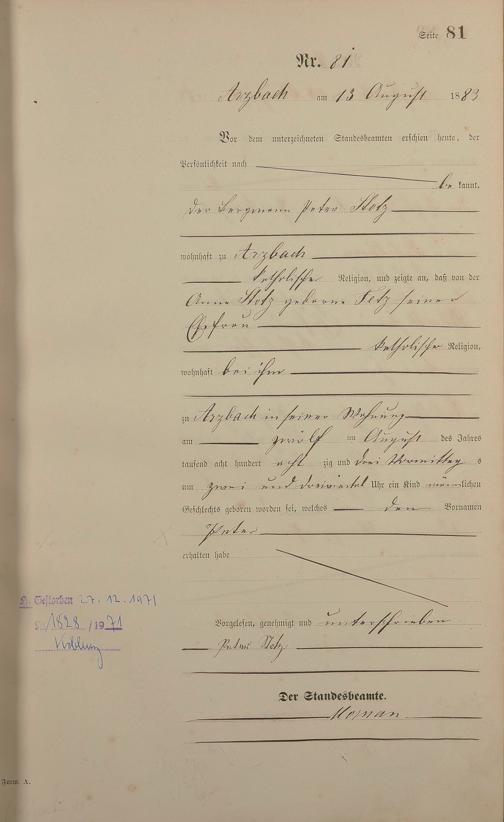 Seite 81
Nr. 81
Arzbach am 13 August 1883
Vor dem unterzeichneten Standesbeamten erschien heute, der
Persönlichkeit nach
be kannt,
der Bergmann Peter Stotz
wohnhaft zu Arzbach
katholischer Religion, und zeigte an, daß von der
Anna Stotz geborne Fetz seiner
Ehefrau
katholischer Religion,
wohnhaft bei ihm
zu Arzbach in seiner Wohnung
am zwölf ten August des Jahres
tausend acht hundert acht zig und drei Vormittag s
um zwei und dreiviertel Uhr ein Kind männlichen
Geschlechts geboren worden sei, welches den Vornamen
Peter
erhalten habe
Vorgelesen, genehmigt und unterschrieben
Peter Stotz
Der Standesbeamte.
Gestorben 27.12.1971
1828/1971
Koblenz
Form. A.